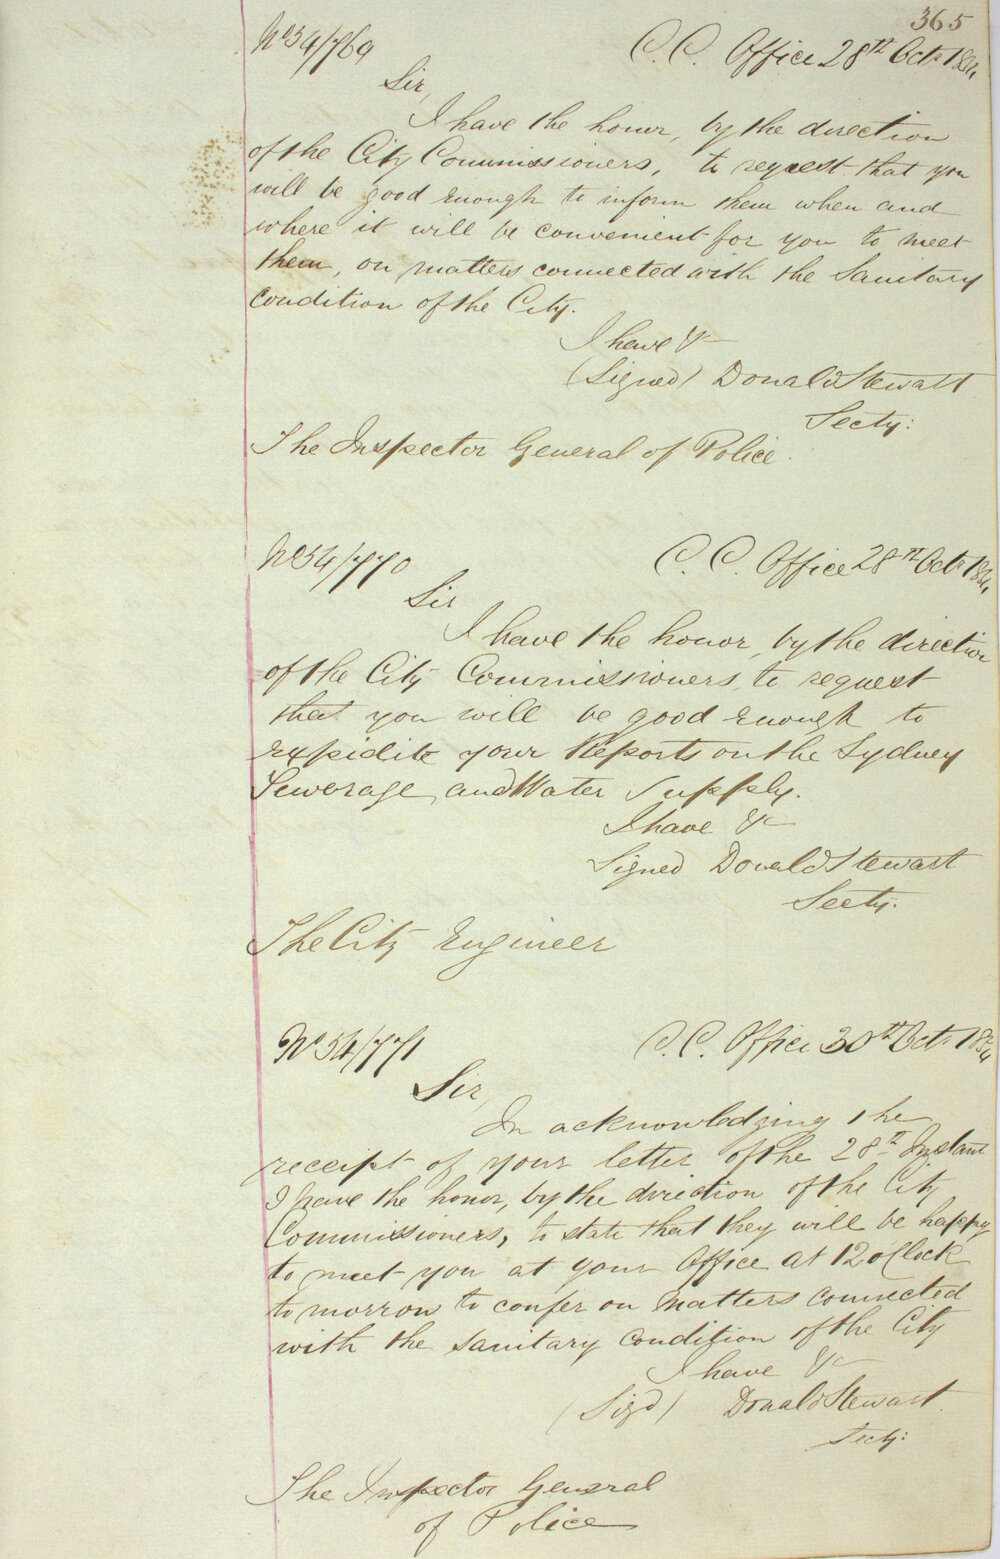 365
No 54/769 C. C. Office 28th Octr 1854
Sir,
I have the honor, by the direction
of the City Commissioners, to request that you
will be good enough to inform them when and
where it will be convenient for you to meet
them, on matters connected with the Sanitary
Condition of the City.
I have &c
(Signed) Donald Stewart
Secty:
The Inspector General of Police.
No 54/770 C. C. Office 28th Octr 1854
Sir
I have the honor, by the direction
of the City Commissioners, to request
that you will be good enough to
expidite your Reports on the Sydney
Sewerage, and Water Supply.
I have &c
Signed Donald Stewart
Secty.
The City Engineer
No 54/771 C. C. Office 30th Octr 1854
Sir,
In acknowledging the
receipt of your letter of the 28th Instant
I have the honor, by the direction of the City
Commissioners, to state that they will be happy
to meet you at your Office at 12 oClock
to morrow to confer on matters connected
with the sanitary condition of the City
I have &c
(Sigd) Donald Stewart.
Secty:
The Inspector General
of Police